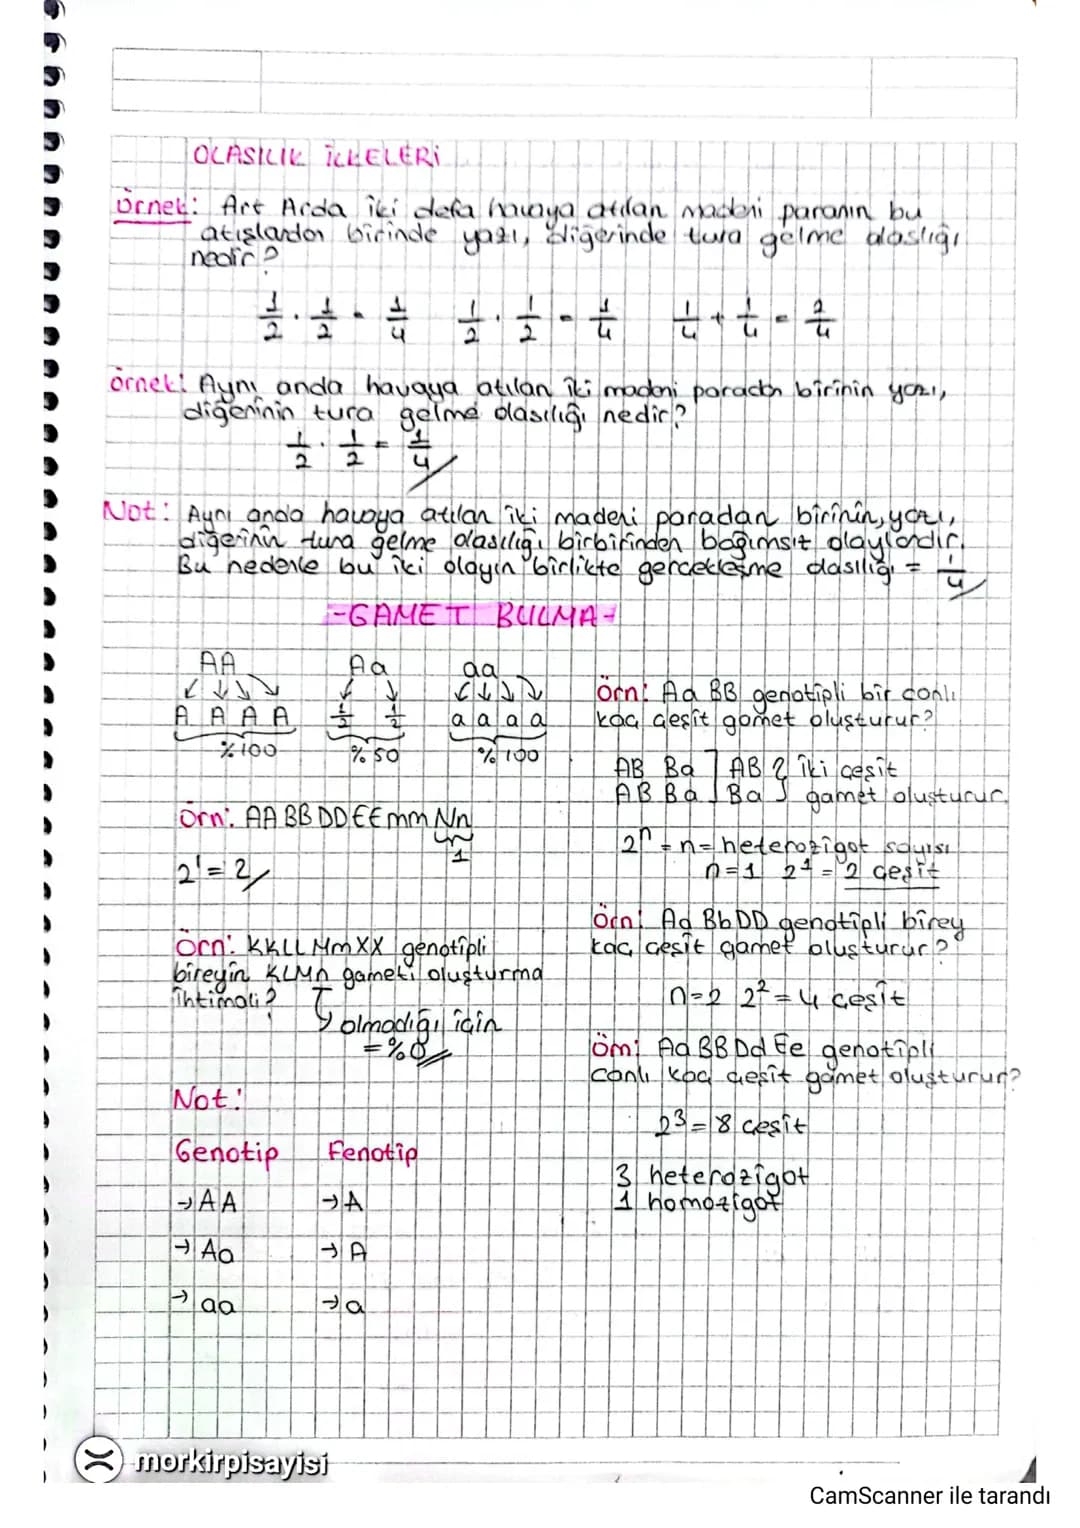 OLASILIK İLKELERİ
Örnek: Art Arda iki defa havaya atılan madeni paranın bu
atışlardan birinde yazı, diğerinde tura gelme olaslığı
nedir?
1/2 . 1/2 = 1/4   1/2 . 1/2 = 1/4   1/4 + 1/4 = 2/4
örnek: Aynı anda havaya atılan iki madeni paradan birinin yazı,
diğerinin tura gelme olasılığı nedir?
1/2 . 1/2 = 1/4
Not: Aynı anda havaya atılan iki madeni paradan birinin, yazı,
diğerinin tura gelme olasılığı birbirinden bağımsız olaylardır.
Bu nedenle bu iki olayın birlikte gerçekleşme olasılığı = 1/4
-GAMET BULMA-
AA   Aa   aa
A A A A   1/2 1/2   a a a a
%100   %50   %100
Örn: AA BB DD EE mm Nn
1
2¹ = 2
Örn: KKLL MmXX genotipli
bireyin KLMn gameti oluşturma
ihtimali?
olmadığı için
= %0
Not:
Genotip   Fenotip
→ AA   → A
→ Aa   → A
→ aa   → a
Örn: Aa BB genotipli bir canlı
kaç çeşit gamet oluşturur?
AB Ba ] AB } iki çeşit
AB Ba ] Ba } gamet oluşturur.
2ⁿ = n = heterozigot sayısı
n=1 2¹ = 2 çeşit
Örn: Aa BbDD genotipli birey
kaç çeşit gamet oluşturur?
n=2 2² = 4 çeşit
Örn: Aa BB Dd Ee genotipli
canlı kaç çeşit gamet oluşturur?
2³ = 8 çeşit
3 heterozigot
1 homozigot
morkirpisayisi
CamScanner ile tarandı